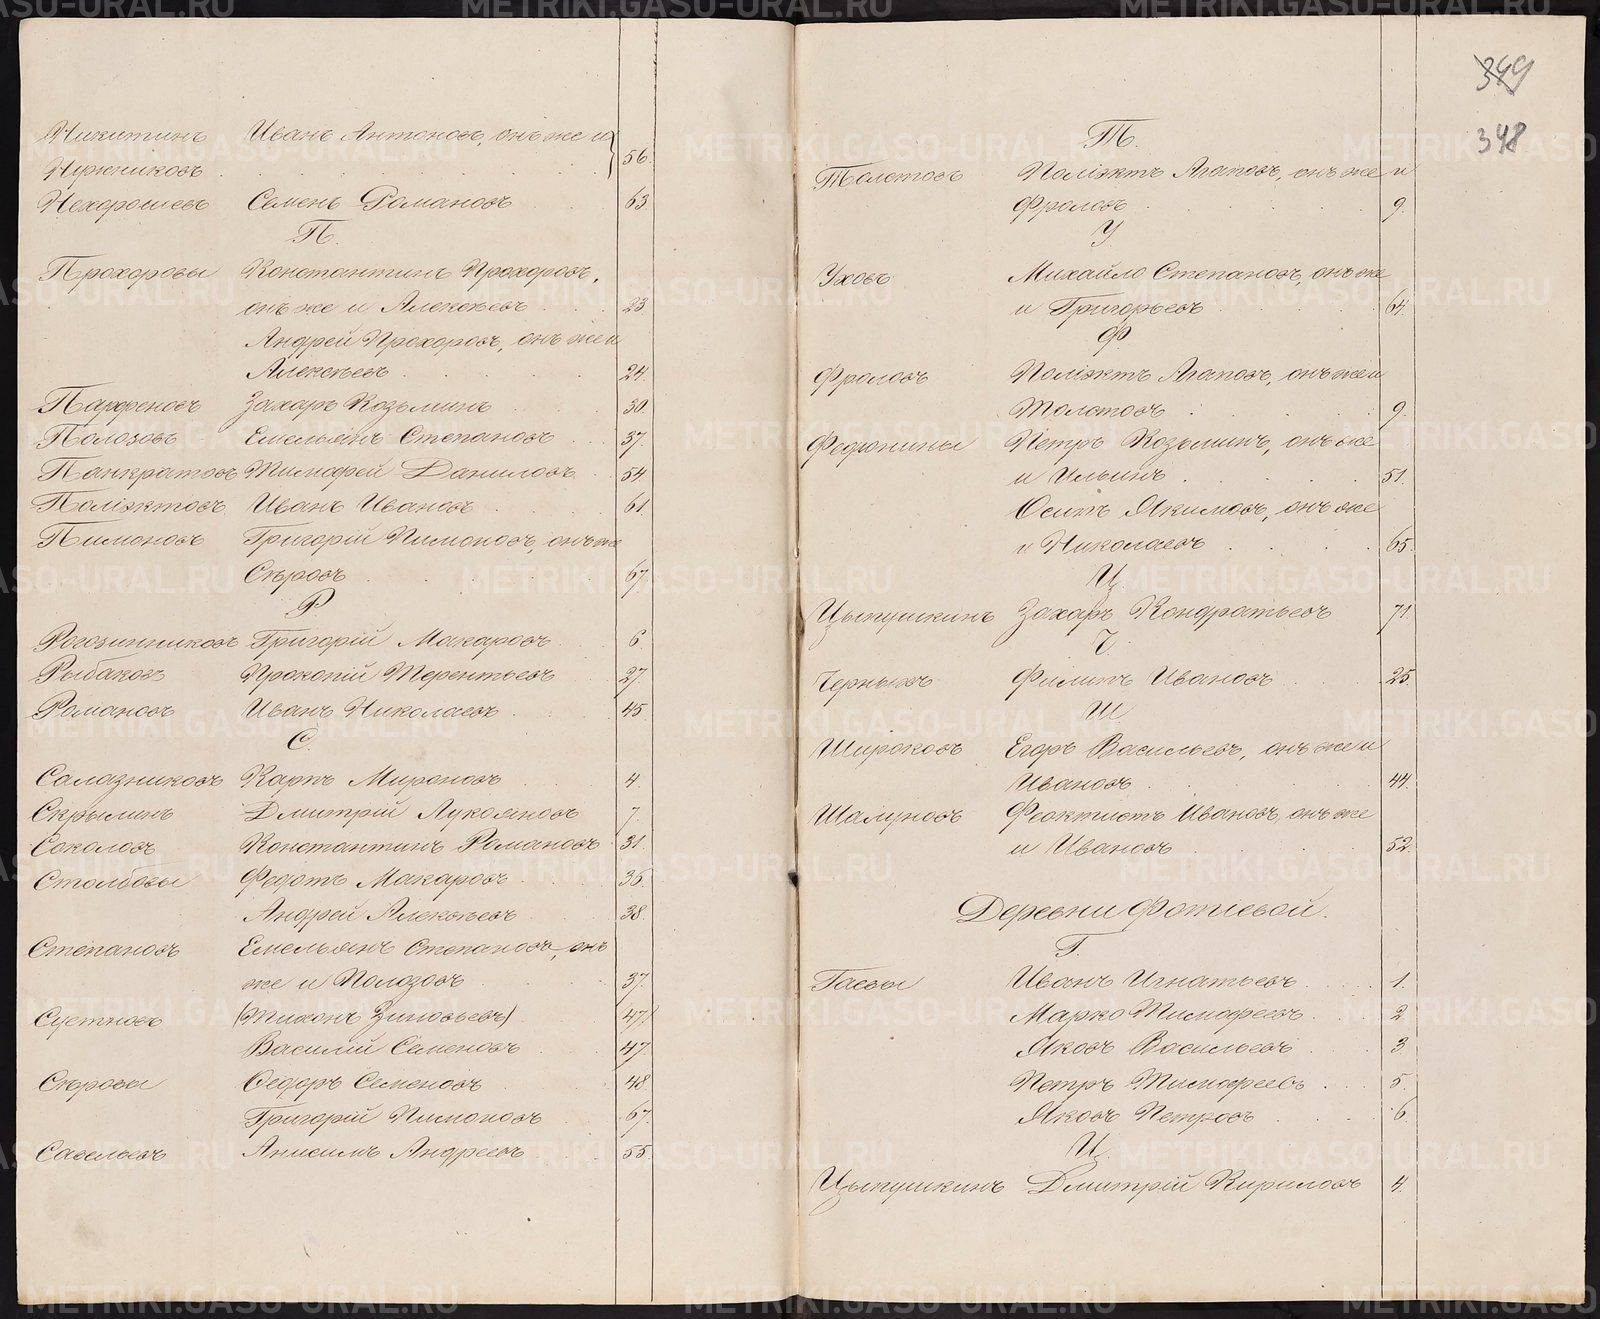 Никитинъ Иванъ Антоновъ, онъ же и
Нужниковъ 56.
Нехорошевъ Семенъ Романовъ 63.
П.
Прохоровы Константинъ Прохоровъ,
онъ же и Алексѣевъ 23
Андрей Прохоровъ, онъ же и
Алексѣевъ 24.
Парфеновъ Захаръ Козьминъ 30.
Полозовъ Емельянъ Степановъ 37.
Панкратовъ Тимофей Даниловъ 54.
Поліэктовъ Иванъ Ивановъ 61.
Пимоновъ Григорій Пимоновъ, онъ же
Сѣровъ 67.
Р.
Рогозинниковъ Григорій Макаровъ 6.
Рыбаковъ Прокопій Терентьевъ 27.
Романовъ Иванъ Николаевъ 45.
С.
Салазниковъ Карпъ Мироновъ 4.
Скрыминъ Дмитрій Лукояновъ 7.
Соколовъ Константинъ Романовъ 31.
Столбовы Федотъ Макаровъ 36.
Андрей Алексѣевъ 38.
Степановъ Емельянъ Степановъ, онъ
же и Полозовъ 37.
Суетновъ (Тихонъ Зиновьевъ) 47.
Василій Семеновъ 47.
Сѣровы Федоръ Семеновъ 48.
Григорій Пимоновъ 67.
Савельевъ Анисимъ Андреевъ 55.
349
348
Т.
Толстовъ Поліэктъ Агаповъ, онъ же и
Фроловъ 9.
У.
Уховъ Михайло Степановъ, онъ же
и Григорьевъ 64.
Ф.
Фроловъ Поліэктъ Агаповъ, онъ же и
Толстовъ 9.
Федюнины Петръ Козьминъ, онъ же
и Ильинъ 51.
Осипъ Якимовъ, онъ же
и Николаевъ 65.
Ц.
Цыпушкинъ Захаръ Кондратьевъ 71.
Ч.
Черныхъ Филипъ Ивановъ 25.
Ш.
Широковъ Егоръ Васильевъ, онъ же и
Ивановъ 44.
Шалуновъ Феоктистъ Ивановъ, онъ же
и Ивановъ 52.
Деревни Фотиевой.
Г.
Гаевы Иванъ Игнатьевъ 1.
Марко Тимофеевъ 2
Яковъ Васильевъ 3
Петръ Тимофеевъ 5.
Яковъ Петровъ 6.
Ц.
Цыпушкинъ Дмитрій Кириловъ 4.
METRIKI.GASO-URAL.RU